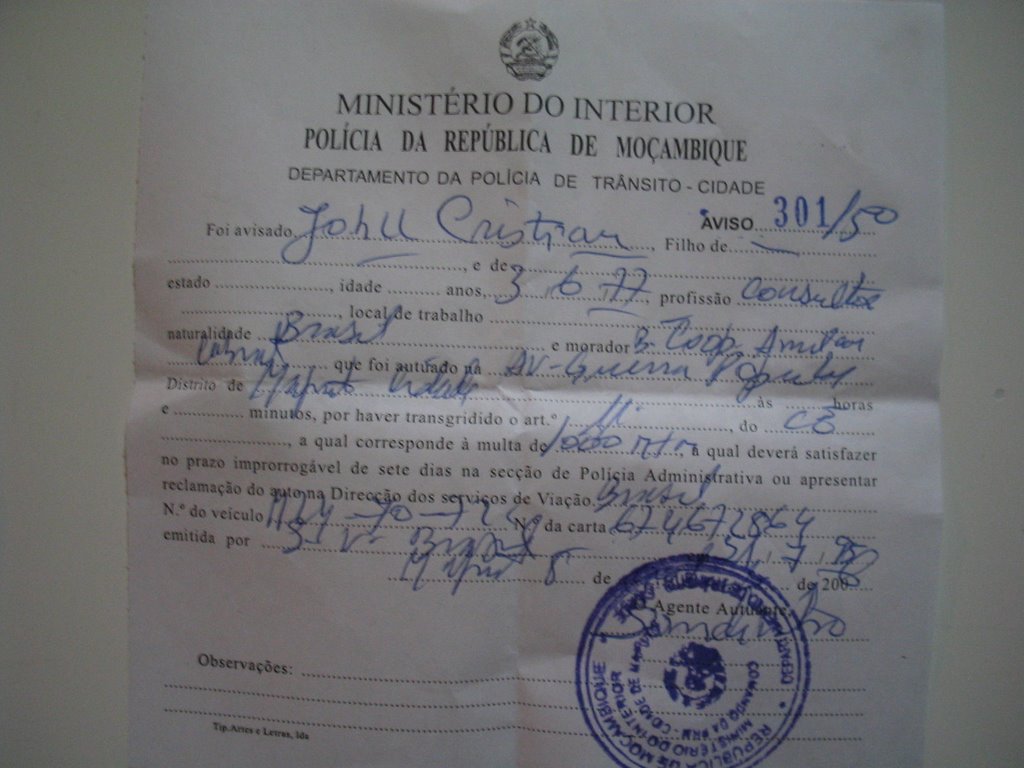 MINISTÉRIO DO INTERIOR
POLÍCIA DA REPÚBLICA DE MOÇAMBIQUE
DEPARTAMENTO DA POLÍCIA DE TRÂNSITO - CIDADE
AVISO 301/50
Foi avisado John Cristian, Filho de
, e de
estado, idade anos, 3 6 77, profissão Consultor
, local de trabalho
naturalidade Brasil e morador B. Coop Amilcar
Cabral que foi autuado na AV-Guerra Popular
Distrito de Maputo Cidade às horas
e minutos, por haver transgredido o art.º, do CE
, a qual corresponde à multa de 1000 Mtn, à qual deverá satisfazer
no prazo improrrogável de sete dias na secção de Polícia Administrativa ou apresentar
reclamação do auto na Direcção dos serviços de Viação. Brasil
N.º do veículo Nº da carta 674672864
emitida por
Maputo 8 de de 200
O Agente Autuante,
Observações:
Tip. Artes e Letras, lda
REPÚBLICA DE MOÇAMBIQUE
MINISTÉRIO DO INTERIOR
COMANDO DA PRM - CIDADE DE MAPUTO